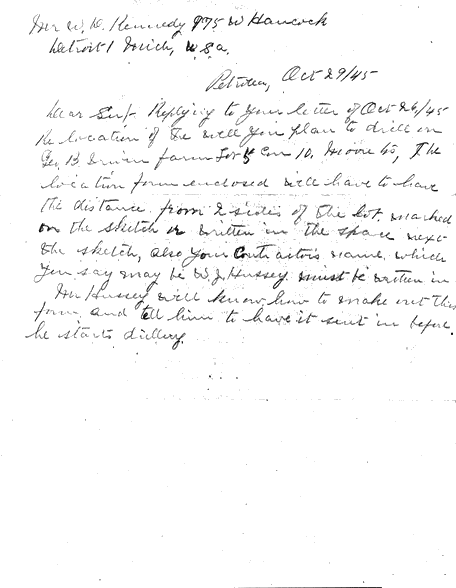 Mr W. D. Kennedy 975 W Hancock
Detroit 1 Mich, U.S.a.
Petrolea, Oct 29/45
Dear Sir/- Replying to your letter of Oct 26/45
Re location of the well you plan to drill on
Geo, B farm Lot 5 Con 10, Moore Tp, The
location form enclosed will have to have
the distance from 2 sides of the lot marked
on the sketch or written in the space next
the sketch, also your Contractors name which
you say may be W J Hussey must be written in
Mr Hussey will know how to make out this
form and tell him to have it sent in before
he starts drilling